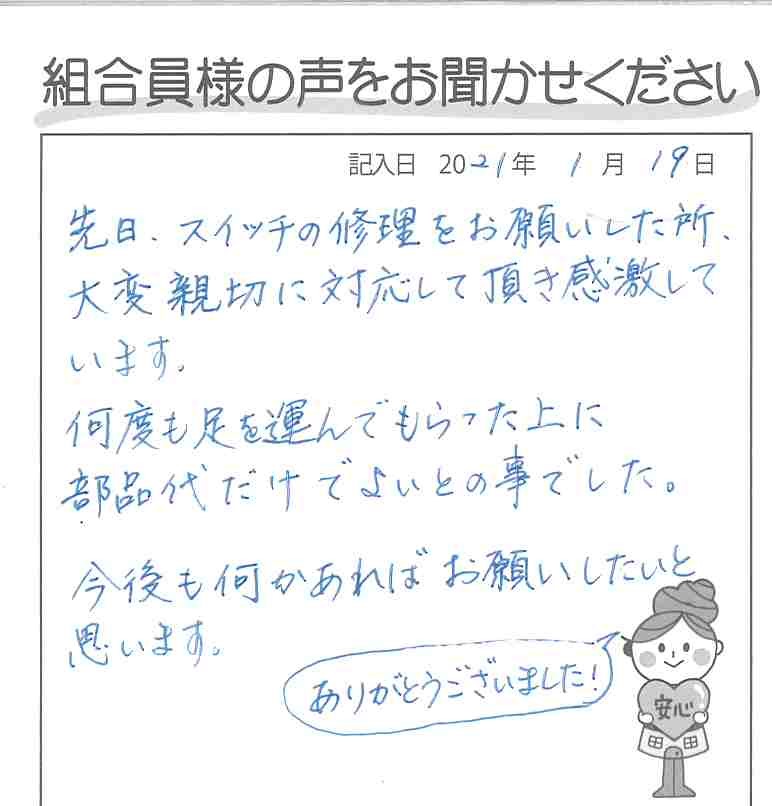 組合員様の声をお聞かせください
記入日 2021年 1月 19日
先日、スイッチの修理をお願いした所、
大変親切に対応して頂き感激して
います。
何度も足を運んでもらった上に
部品代だけでよいとの事でした。
今後も何かあればお願いしたいと
思います。
ありがとうございました!
安心